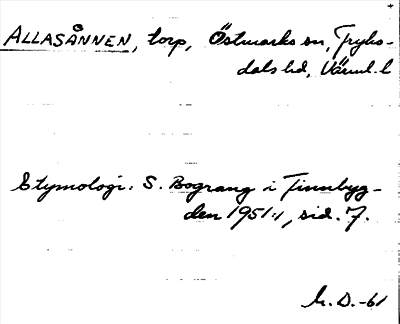 ALLASÅNNEN, torp, Östmarks sn, Fryks-
dals hd, Värml. l
Etymologi: S. Bograng i Finnbyg-
den 1951:1, sid. 7.
M. D. -61